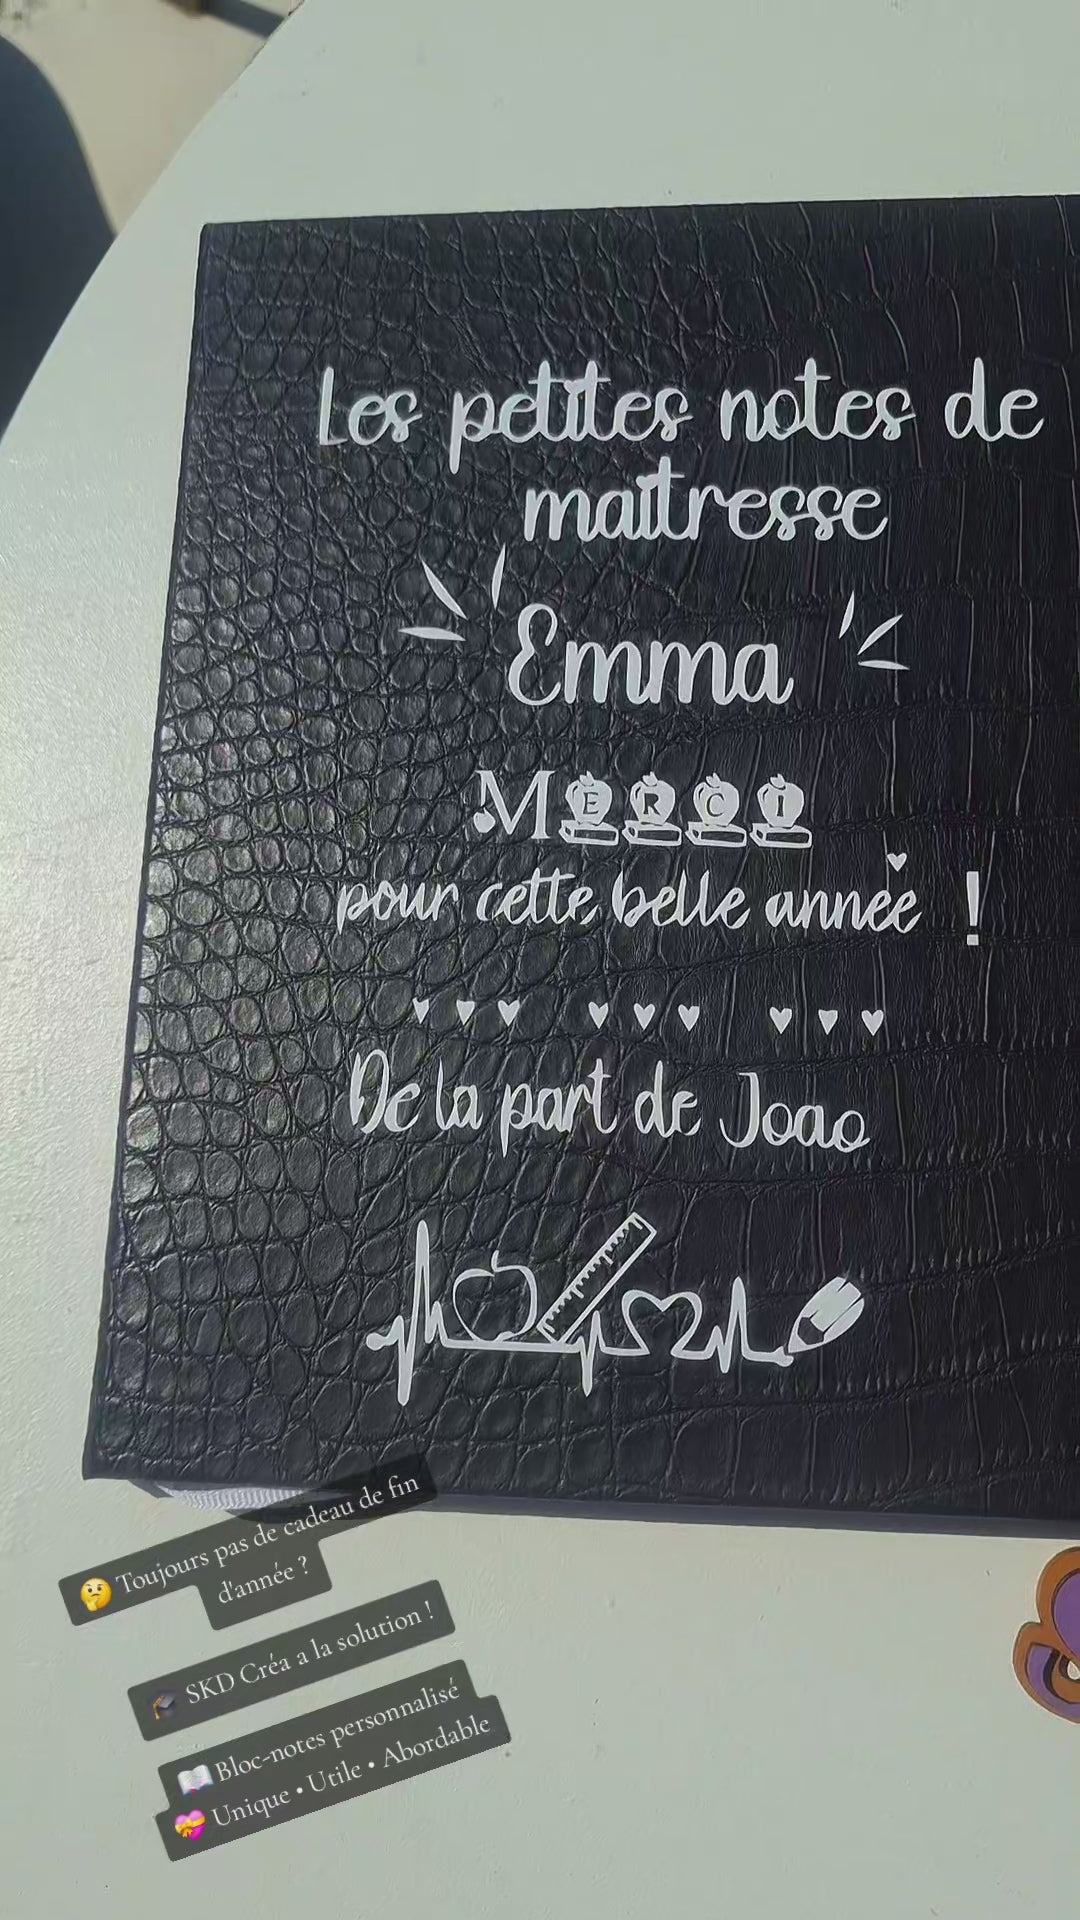 Les petites notes de
maîtresse
Emma
MERCI
pour cette belle année !
De la part de Joao
🤔 Toujours pas de cadeau de fin
d'année ?
🎓 SKD Créa a la solution !
📖 Bloc-notes personnalisé
💝 Unique • Utile • Abordable